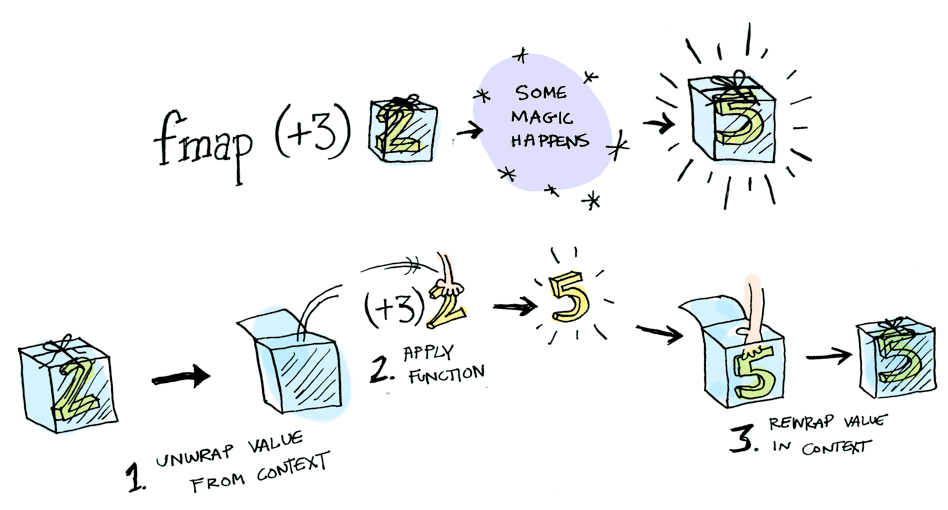 fmap (+3) 2
SOME
MAGIC
HAPPENS
5
2
1. UNWRAP VALUE
FROM CONTEXT
(+3) 2
2. APPLY
FUNCTION
5
5
3. REWRAP VALUE
IN CONTEXT
5